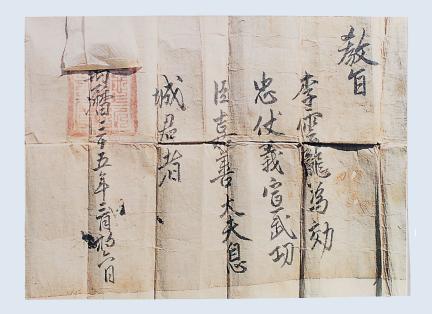 敎旨
李雲龍爲効
忠仗義宣武功
臣嘉善大夫息
城君者
曆三十五年二月初六日